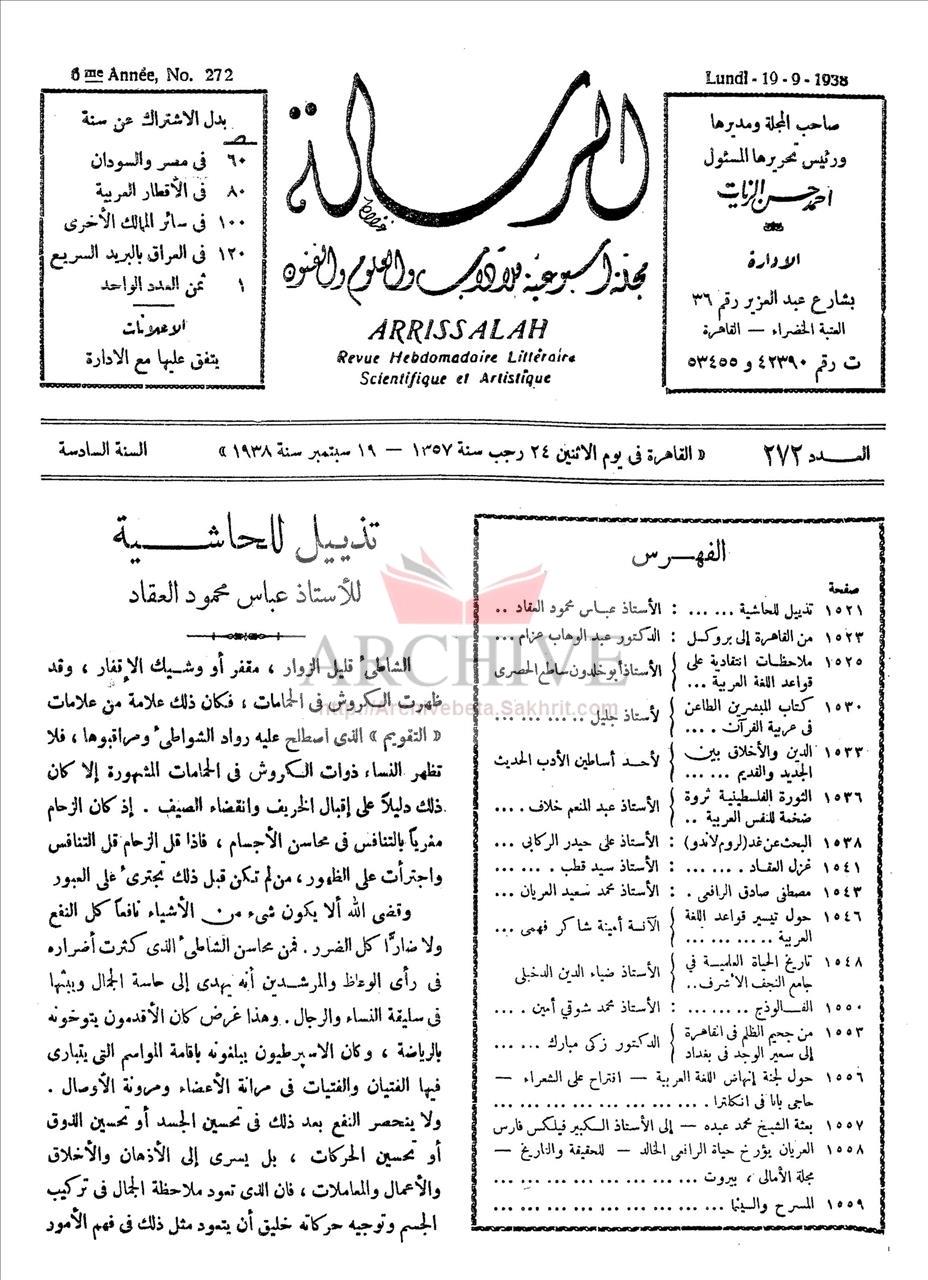 6me Année, No. 272
Lundi - 19 - 9 - 1938
صاحب المجلة ومديرها
ورئيس تحريرها المسئول
احمد حسن الزيات
الادارة
بشارع عبد العزيز رقم ٣٦
العتبة الخضراء — القاهرة
ت رقم ٤٢٣٩٠ و ٥٣٤٥٥
الرسالة
مجلة أسبوعية للآداب والعلوم والفنون
ARRISSALAH
Revue Hebdomadaire Littéraire
Scientifique et Artistique
بدل الاشتراك عن سنة
٦٠ فى مصر والسودان
٨٠ فى الأقطار العربية
١٠٠ فى سائر الممالك الأخرى
١٢٠ فى العراق بالبريد السريع
١ ثمن العدد الواحد
الاعلانات
يتفق عليها مع الادارة
العـــدد ٢٧٢
« القاهرة فى يوم الاثنين ٢٤ رجب سنة ١٣٥٧ — ١٩ سبتمبر سنة ١٩٣٨ »
السنة السادسة
الفهـرس
صفحة
١٥٢١ تذييل للحاشية ... ... : الأستاذ عباس محمود العقاد ..
١٥٢٣ من القاهرة إلى بروكسل : الدكتور عبد الوهاب عزام ...
١٥٢٥ ملاحظات انتقادية على
قواعد اللغة العربية ... } الأستاذ أبو خلدون ساطع الحصرى
١٥٣٠ كتاب المبشرين الطاعن
فى عربية القرآن . ... } لأستاذ جليل ... ... ...
١٥٣٣ الدين والأخلاق بين
الجديد والقديم ... ... } لأحد أساطين الأدب الحديث
١٥٣٦ الثورة الفلسطينية ثروة
ضخمة للنفس العربية .. } الأستاذ عبد المنعم خلاف . ...
١٥٣٨ البحث عن غد (لروم لاندو) : الأستاذ على حيدر الركابى ...
١٥٤١ غزل العقاد . ... ... : الأستاذ سيد قطب . ... ...
١٥٤٣ مصطفى صادق الرافعى . : الأستاذ محمد سعيد العريان ...
١٥٤٦ حول تيسير قواعد اللغة
العربية .. ... ... ... } الآنسة أمينة شاكر فهمى ...
١٥٤٨ تاريخ الحياة العلمية فى
جامع النجف الأشرف.. } الأستاذ ضياء الدين الدخيلى
١٥٥٠ الفـالوذج .. ... ... : الأستاذ محمد شوقي أمين . ...
١٥٥٣ من جحيم الظلم فى القاهرة
إلى سعير الوجد فى بغداد } الدكتور زكى مبارك ... ...
١٥٥٦ حول لجنة إنهاض اللغة العربية — اقتراح على الشعراء —
حاجى بابا فى انكلترا . ... ... ... ... ... ...
١٥٥٧ بعثة الشيخ محمد عبده — إلى الأستاذ الكبير فيلكس فارس
١٥٥٨ العريان يؤرخ حياة الرافعى الخالد — للحقيقة والتاريخ —
مجلة الأمالى ، بيروت ... ... ... ... ... ...
١٥٥٩ المسرح والسينما ... ... ... ... ... ... ...
تذييل للحاشــــية
للأستاذ عباس محمود العقاد
الشاطىء قليل الزوار ، مقفر أو وشيك الإقفار ، وقد
ظهرت الكروش فى الحمامات ، فكان ذلك علامة من علامات
« التقويم » الذى اصطلح عليه رواد الشواطىء ومراقبوها ، فلا
تظهر النساء ذوات الكروش فى الحمامات المشهورة إلا كان
ذلك دليلاً على إقبال الخريف وانقضاء الصيف . إذ كان الزحام
مغرياً بالتنافس فى محاسن الأجسام ، فاذا قل الزحام قل التنافس
واجترأت على الظهور ، من لم تكن قبل ذلك تجترىء على العبور
وقضى الله ألا يكون شىء من الأشياء نافعاً كل النفع
ولا ضاراً كل الضرر . فمن محاسن الشاطىء الذى كثرت أضراره
فى رأى الوعاظ والمرشدين أنه يهدى إلى حاسة الجمال ويبثها
فى سليقة النساء والرجال . وهذا غرض كان الأقدمون يتوخونه
بالرياضة ، وكان الاسبرطيون يبلغونه باقامة المواسم التى يتبارى
فيها الفتيان والفتيات فى مرانة الأعضاء ومرونة الأوصال .
ولا ينحصر النفع بعد ذلك فى تحسين الجسد أو تحسين الذوق
أو تحسين الحركات ، بل يسرى إلى الأذهان والأخلاق
والأعمال والمعاملات ، فان الذى تعود ملاحظة الجمال فى تركيب
الجسم وتوجيه حركاته خليق أن يتعود مثل ذلك فى فهم الأمور
ARCHIVE
http://Archivebeta.Sakhrit.com